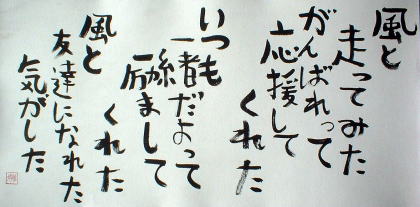 風と
走ってみた
がんばれって
応援して
くれた
いつも
一緒だよって
励まして
くれた
風と
友達になれた
気がした